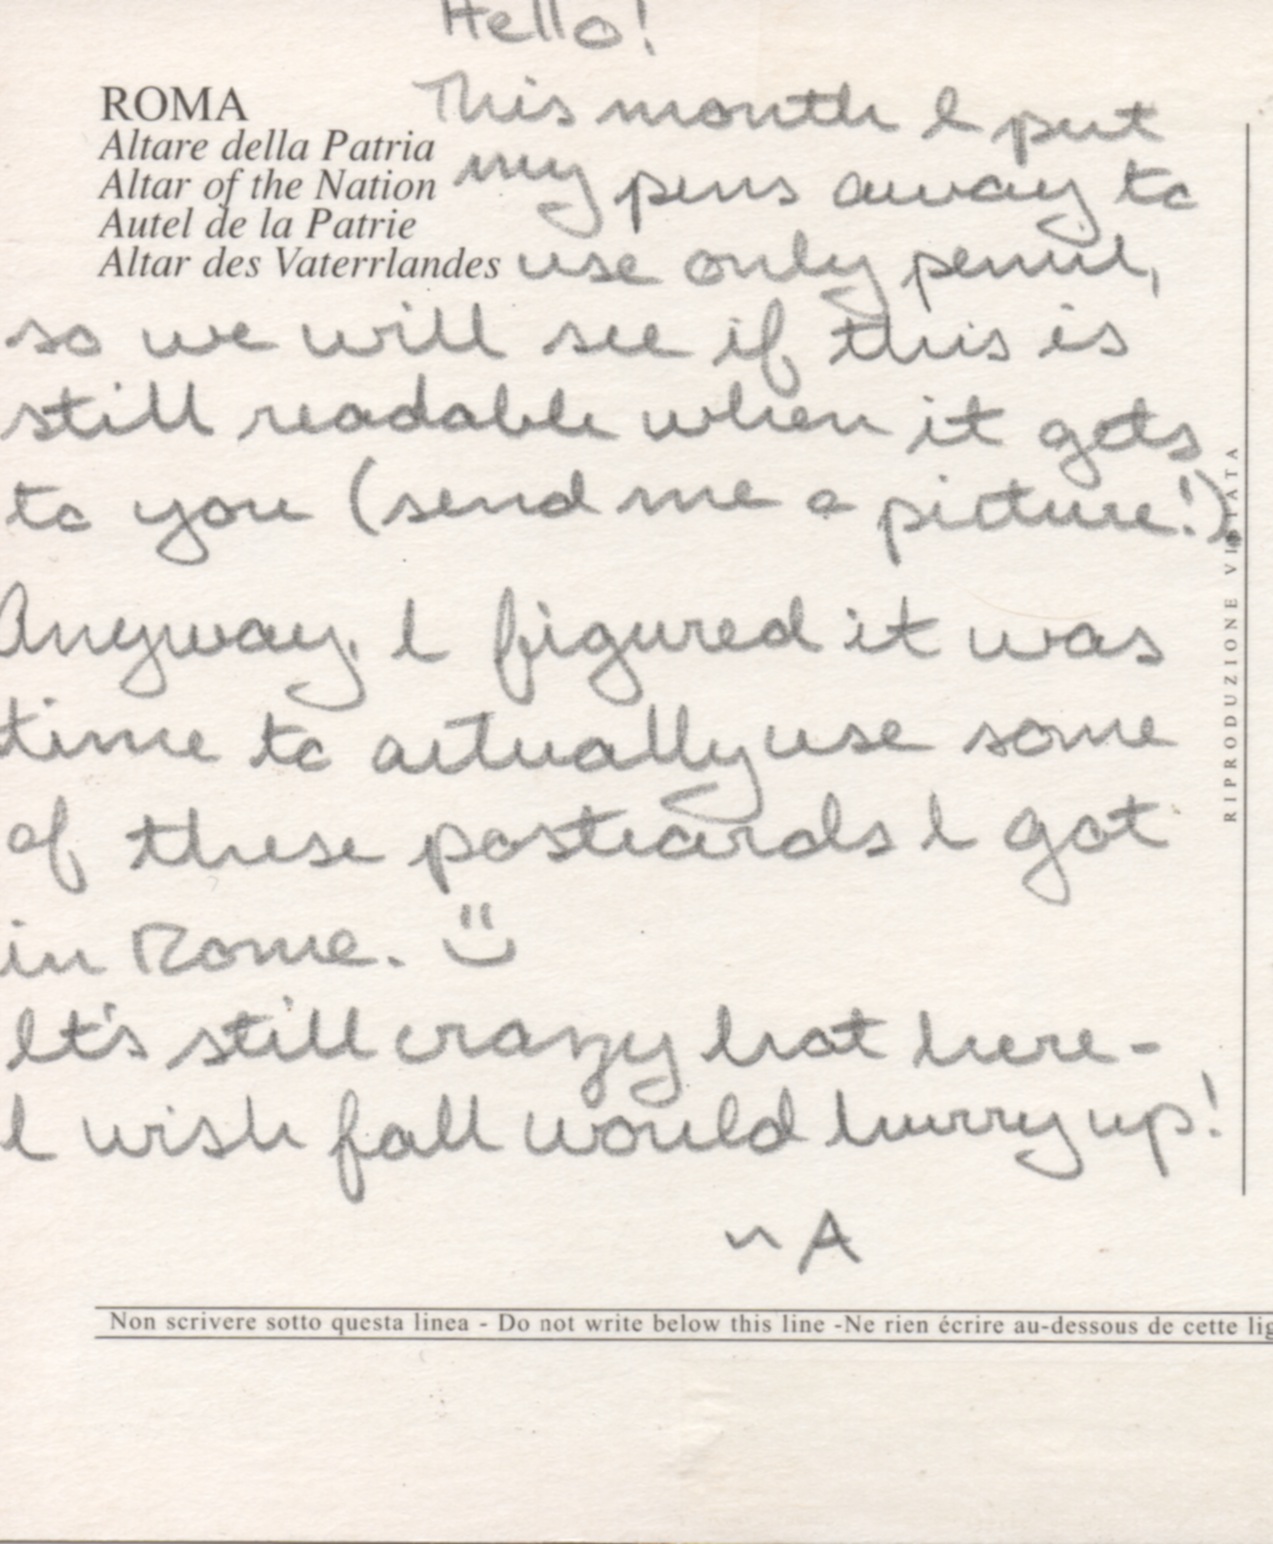 Hello!
ROMA
Altare della Patria
Altar of the Nation
Autel de la Patrie
Altar des Vaterrlandes
This month I put
my pens away to
use only pencil,
so we will see if this is
still readable when it gets
to you (send me a picture!).
Anyway, I figured it was
time to actually use some
of these postcards I got
in Rome. ü
It's still crazy hot here-
I wish fall would hurry up!
~A
RIPRODUZIONE VIETATA
Non scrivere sotto questa linea - Do not write below this line -Ne rien écrire au-dessous de cette lig